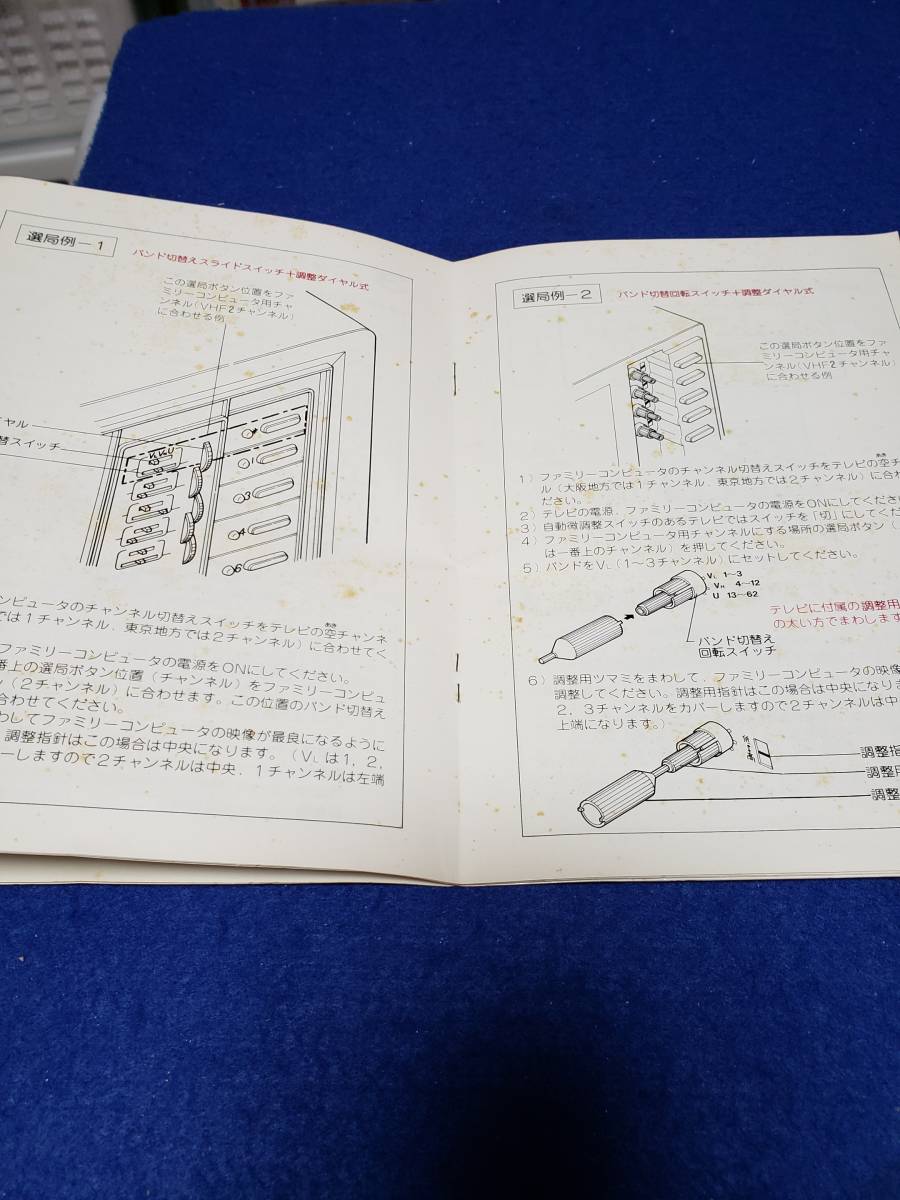 選局例－1
バンド切替えスライドスイッチ＋調整ダイヤル式
この選局ボタン位置をファ
ミリーコンピュータ用チャ
ンネル（VHF2チャンネル）
に合わせる例
イヤル
替スイッチ
VL VH U
L
1
3
4
6
ンピュータのチャンネル切替えスイッチをテレビの空チャンネ
あき
では1チャンネル．東京地方では2チャンネル）に合わせてく
ファミリーコンピュータの電源をONにしてください。
番上の選局ボタン位置（チャンネル）をファミリーコンピュ
ン（2チャンネル）に合わせます。この位置のバンド切替え
合わせてください。
わしてファミリーコンピュータの映像が最良になるように
調整指針はこの場合は中央になります。（VLは1，2，
ーしますので2チャンネルは中央．1チャンネルは左端
選局例－2
バンド切替回転スイッチ＋調整ダイヤル式
この選局ボタン位置をファ
ミリーコンピュータ用チャ
ンネル（VHF2チャンネル）
に合わせる例
1）ファミリーコンピュータのチャンネル切替えスイッチをテレビの空チ
あき
ル（大阪地方では1チャンネル．東京地方では2チャンネル）に合わ
ださい。
2）テレビの電源．ファミリーコンピュータの電源をONにしてくださ
3）自動微調整スイッチのあるテレビではスイッチを「切」にしてくだ
4）ファミリーコンピュータ用チャンネルにする場所の選局ボタン（
は一番上のチャンネル）を押してください。
5）バンドをVL（1～3チャンネル）にセットしてください。
VL 1～3
VH 4～12
U 13～62
テレビに付属の調整用
の太い方でまわします
バンド切替え
回転スイッチ
6）調整用ツマミをまわして．ファミリーコンピュータの映像
調整してください。調整用指針はこの場合は中央になりま
2，3チャンネルをカバーしますので2チャンネルは中
上端になります。）
調整指
調整用
調整